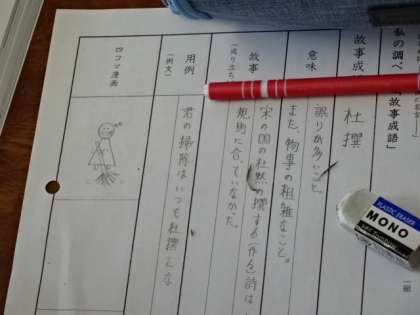 私の調べ「故事成語」
故事成
杜撰
意味
誤りが多いこと。
また、物事の粗雑なこと。
故事
(成り立ち
宋の国の杜黙の撰する(作る)詩は
規則に合っていなかた。
用例
(例文)
君の掃除はいつも杜撰だな
四コマ漫画
PLASTIC ERASER
MONO
一組